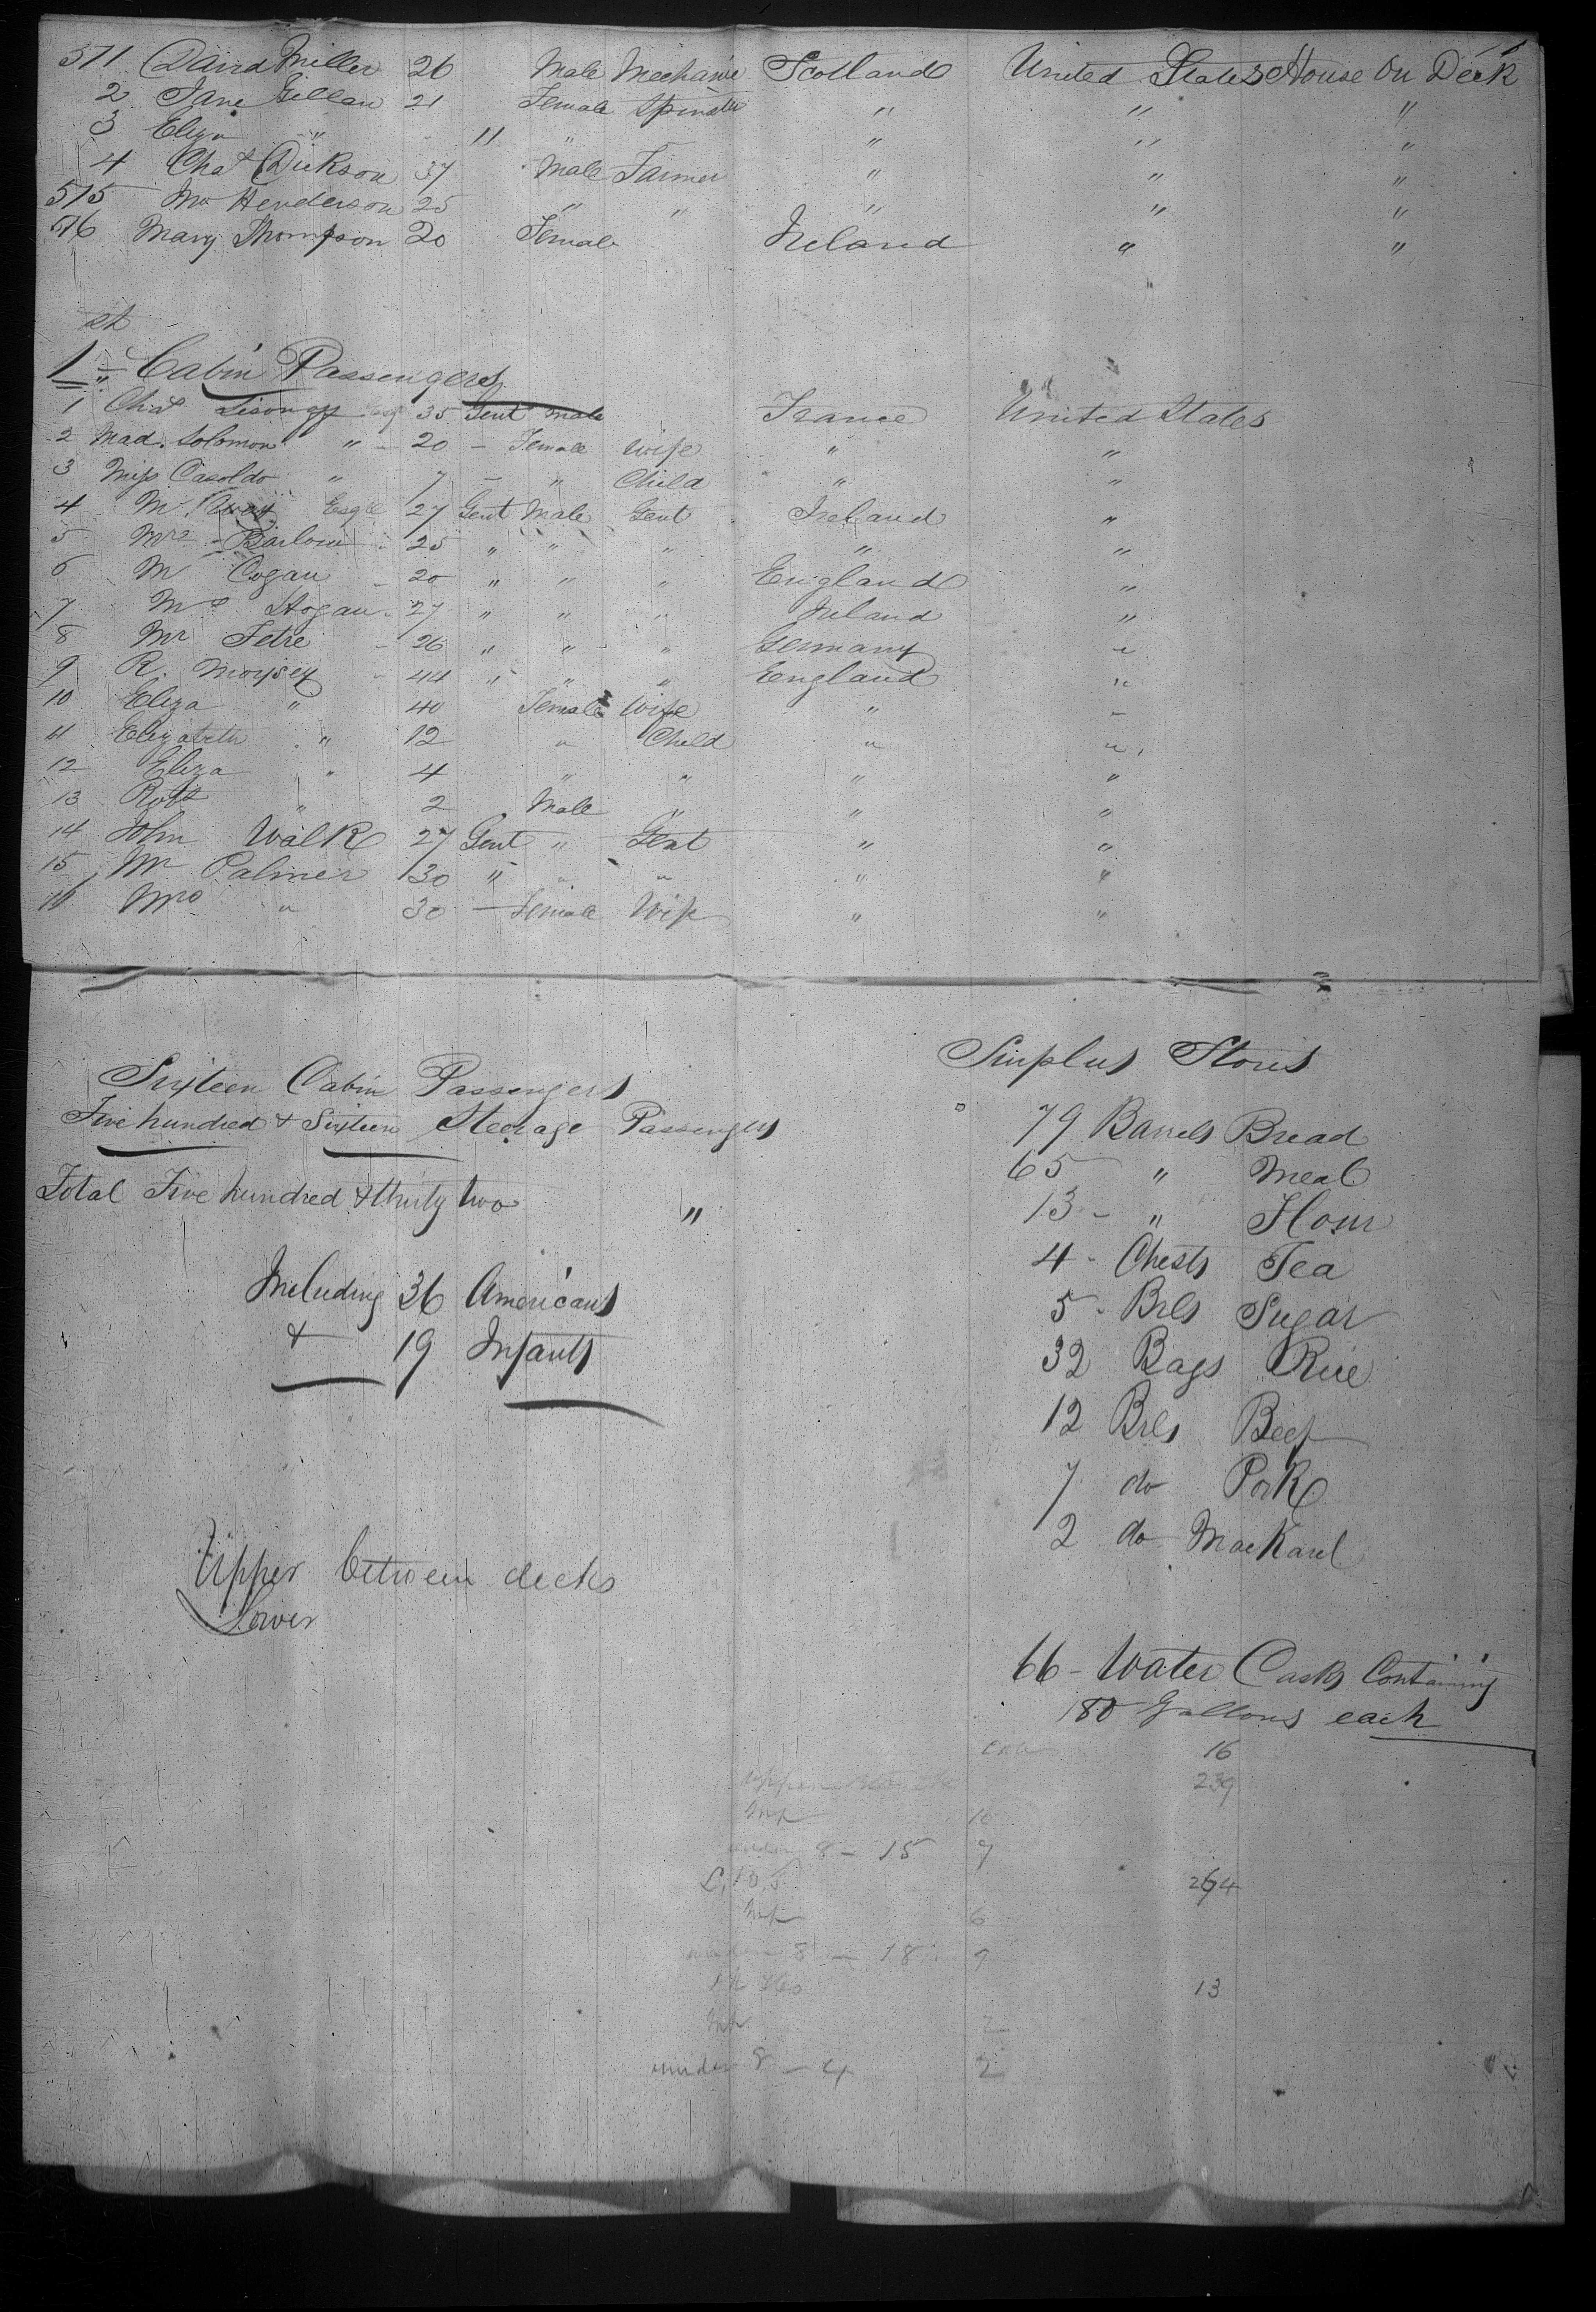 511 David Miller 26 Male Mechanic Scotland United States House On Deck
2 Jane Gillan 21 Female Spinster " " "
3 Eliza " 11 " " " "
4 Chas Dickson 37 Male Farmer " " "
515 Mr Henderson 25 " " " " "
516 Mary Thompson 20 Female Ireland " "
1st Cabin Passengers
1 Chas 35 Gent Male France United States
2 Mad. Solomon " - 20 - Female Wife " "
3 Miss Casoldo " 7 - " Child " "
4 Mr Esqre 27 Gent Male Gent Ireland "
5 Barlow 25 " " " " "
6 M Cogan - 20 " " " England "
7 Mr Hogan - 27 " " " Ireland "
8 Mr Fetre - 26 " " " Germany "
9 R. Moysey - 44 " " " England "
10 Eliza " 40 Female Wife " "
11 Elizabeth " 12 " Child " "
12 Eliza " 4 " " " "
13 Robt " 2 Male " " "
14 John Walk 27 Gent " Gent " "
15 Mr Palmer 30 " " " " "
16 Mrs " 30 - Female Wife " "
Sixteen Cabin Passengers
Five hundred & Sixteen Steerage Passengers
Total Five hundred & thirty two "
Including 36 Americans
& 19 Infants
Upper between decks
Lower
Surplus Stores
79 Barrels Bread
65 " Meal
13 - " Flour
4 - Chests Tea
5 - Brls Sugar
32 Bags Rice
12 Brls Beef
7 do Pork
2 do Mackarel
66 - Water Casks Containing
180 Gallons each
16
239
Inf 10
under 8 - 15 9
264
Inf 6
under 8 - 18 9
13
Inf 2
under 8 - 4 2